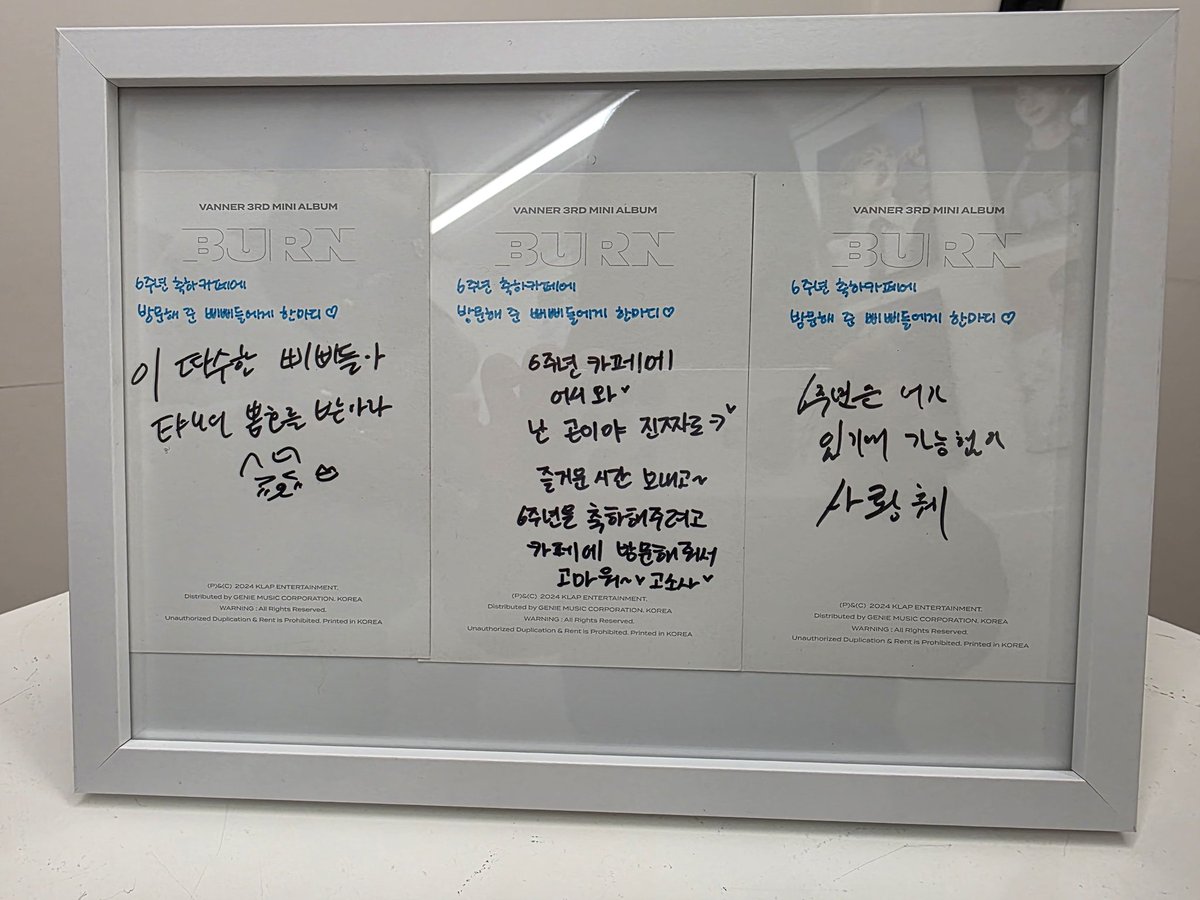 VANNER 3RD MINI ALBUM
BURN
6주년 축하카페에
방문해 준 삐삐들에게 한마디♡
이 따수한 삐삐들아
봄흔를 받아라
VANNER 3RD MINI ALBUM
BURN
6주년 축하카페에
방문해 준 삐삐들에게 한마디♡
6주년 카페에
어서와♥
난 곤이야 진짜로ㅋ♥
즐거운 시간 보내고~
6주년을 축하해주려고
카페에 방문해줘서
고마워~♥ 고소사♥
VANNER 3RD MINI ALBUM
BURN
6주년 축하카페에
방문해 준 삐삐들에게 한마디♡
6주년은 너가
있기에 가능했어
사랑훼
(P)&(C) 2024 KLAP ENTERTAINMENT.
Distributed by GENIE MUSIC CORPORATION. KOREA
WARNING : All Rights Reserved.
Unauthorized Duplication & Rent is Prohibited. Printed in KOREA
(P)&(C) 2024 KLAP ENTERTAINMENT.
Distributed by GENIE MUSIC CORPORATION. KOREA
WARNING : All Rights Reserved.
Unauthorized Duplication & Rent is Prohibited. Printed in KOREA
(P)&(C) 2024 KLAP ENTERTAINMENT.
Distributed by GENIE MUSIC CORPORATION. KOREA
WARNING : All Rights Reserved.
Unauthorized Duplication & Rent is Prohibited. Printed in KOREA